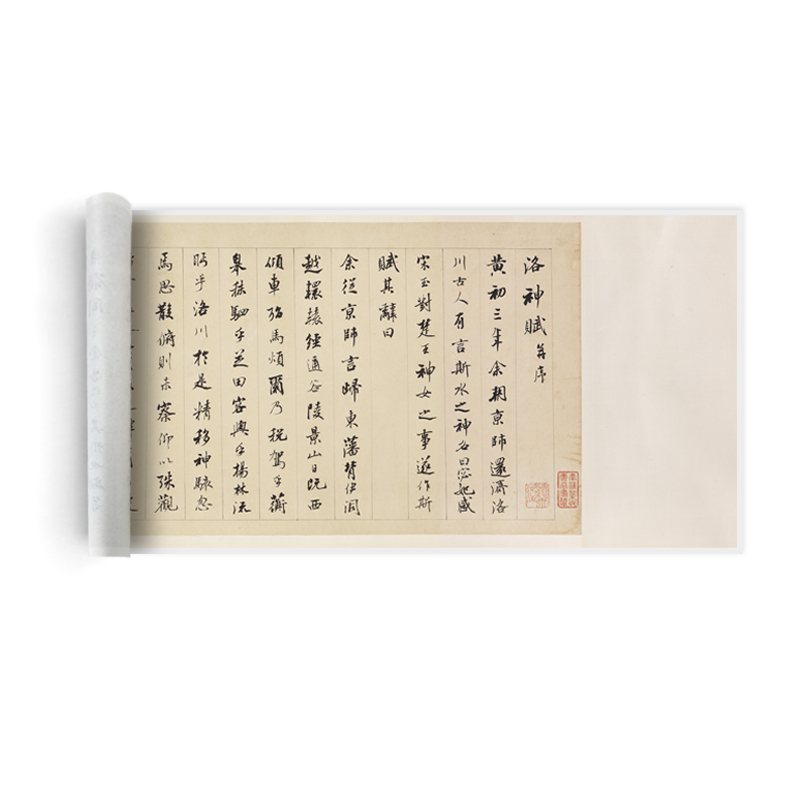 洛神賦 并序
黄初三年余朝京師還濟洛
川古人有言斯水之神名曰宓妃感
宋玉對楚王神女之事遂作斯
賦其辭曰
余從京師言歸東藩背伊闕
越轘轅經通谷陵景山日既西
傾車殆馬煩爾乃税駕乎蘅
皋秣駟乎芝田容與乎楊林流
眄乎洛川於是精移神駭忽
焉思散俯則未察仰以殊觀